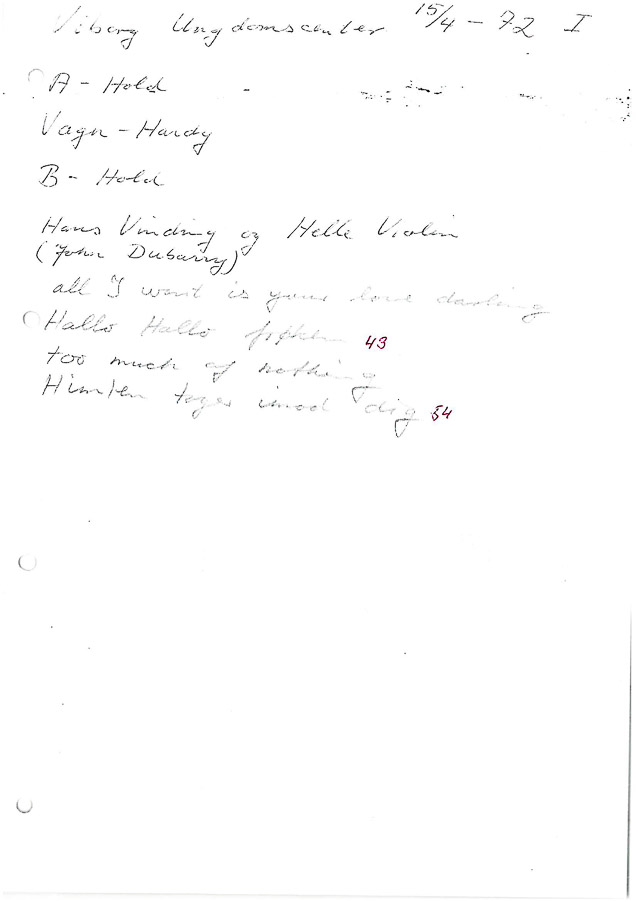 Viborg Ungdomscenter 15/4 - 72 I
A - Hold -
Vagn - Hardy
B - Hold
Hans Vinding og Helle Violin
(John Dubarry)
all I want is your love darling
Hallo Hallo 43
too much of nothing
Himlen tager imod dig 54